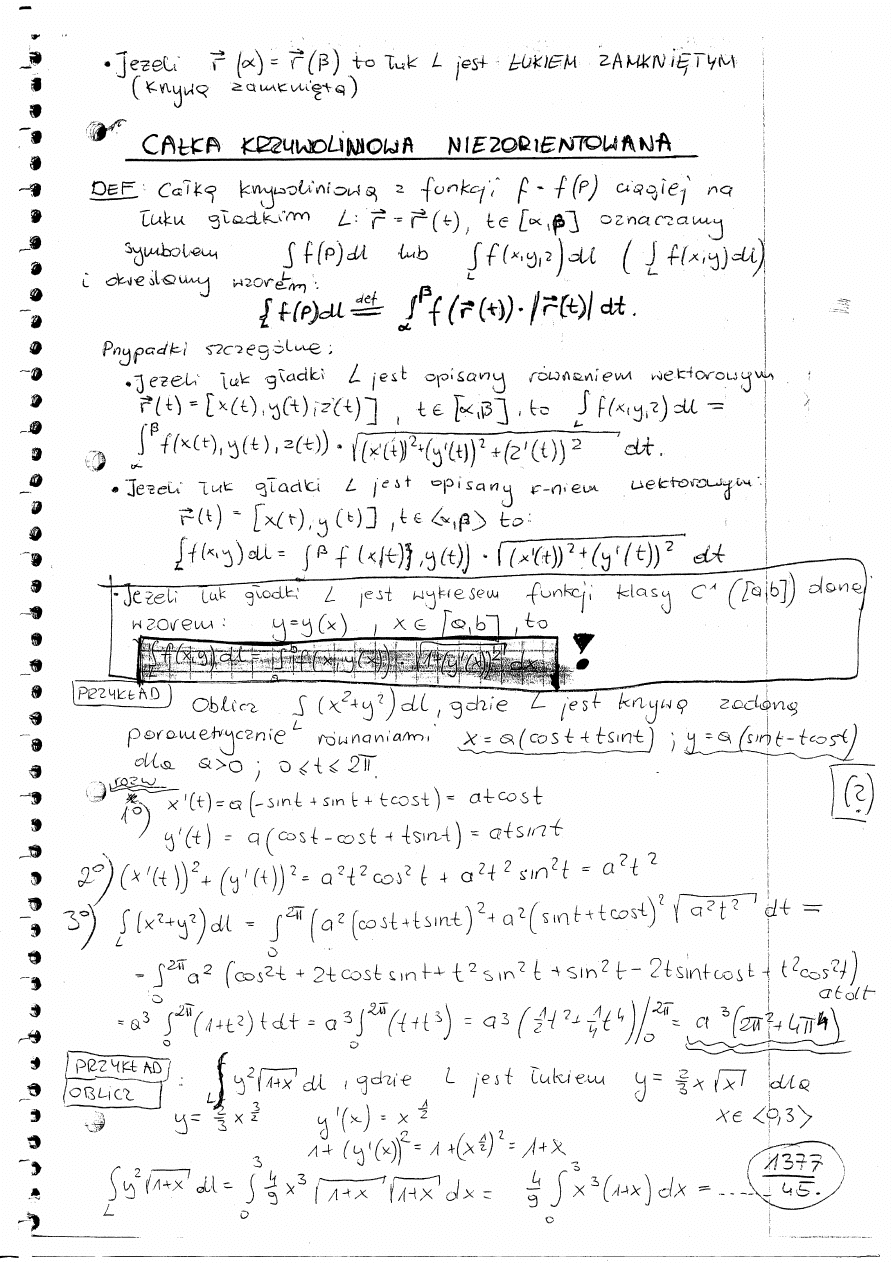 • Jeżeli r⃗(α) = r⃗(β) to łuk L jest ŁUKIEM ZAMKNIĘTYM
(krzywą zamkniętą)
CAŁKA KRZYWOLINIOWA NIEZORIENTOWANA
DEF: Całkę krzywoliniową z funkcji f = f(P) ciągłej na
łuku gładkim L: r⃗ = r⃗(t), t∈[α,β] oznaczamy
symbolem ∫f(P)dl lub ∫_L f(x,y,z)dl (∫_L f(x,y)dl)
i określamy wzorem:
∫_L f(P)dl =^def ∫_α^β f(r⃗(t))·|r⃗(t)|dt.
Przypadki szczególne:
• Jeżeli łuk gładki L jest opisany równaniem wektorowym
r⃗(t) = [x(t), y(t); z(t)], t∈[α,β], to ∫_L f(x,y,z)dl =
∫_α^β f(x(t), y(t), z(t)) · √((x'(t))²+(y'(t))²+(z'(t))²) dt.
• Jeżeli łuk gładki L jest opisany r-niem wektorowym:
r⃗(t) = [x(t), y(t)], t∈<α,β> to:
∫_L f(x,y)dl = ∫_α^β f(x(t), y(t)) · √((x'(t))²+(y'(t))²) dt
• Jeżeli łuk gładki L jest wykresem funkcji klasy C¹([a,b]) danej
wzorem: y=y(x), x∈[a,b], to
∫_L f(x,y)dl = ∫_a^b f(x,y(x)) · √(1+(y'(x))²) dx !
PRZYKŁAD Oblicz ∫_L (x²+y²)dl, gdzie L jest krzywą zadaną
parametrycznie równaniami x=a(cost+tsint); y=a(sint-tcost)
dla a>0; 0≤t≤2π.
rozw. (?)
1°) x'(t)=a(-sint+sint+tcost)= atcost
y'(t) = a(cost-cost+tsint)= atsint
2°) (x'(t))²+(y'(t))²= a²t²cos²t + a²t²sin²t = a²t²
3°) ∫_L (x²+y²)dl = ∫_0^2π (a²(cost+tsint)²+a²(sint+tcost)² √(a²t²) dt =
= ∫_0^2π a² (cos²t + 2tcostsint + t²sin²t + sin²t - 2tsintcost + t²cos²t)
atdt
= a³ ∫_0^2π (1+t²)tdt = a³ ∫_0^2π (t+t³) = a³(½t²+¼t⁴)/_0^2π = a³(2π²+4π⁴)
PRZYKŁAD
OBLICZ : ∫_L y²√(1+x) dl, gdzie L jest łukiem y=⅔x√x dla
y=⅔x^(3/2) y'(x)=x^(1/2) x∈<0,3>
1+(y'(x))²=1+(x^(1/2))²=1+x
∫_L y²√(1+x) dl = ∫_0^3 4/9 x³ √(1+x) √(1+x) dx = 4/9 ∫_0^3 x³(1+x)dx = ...... 1377/45.